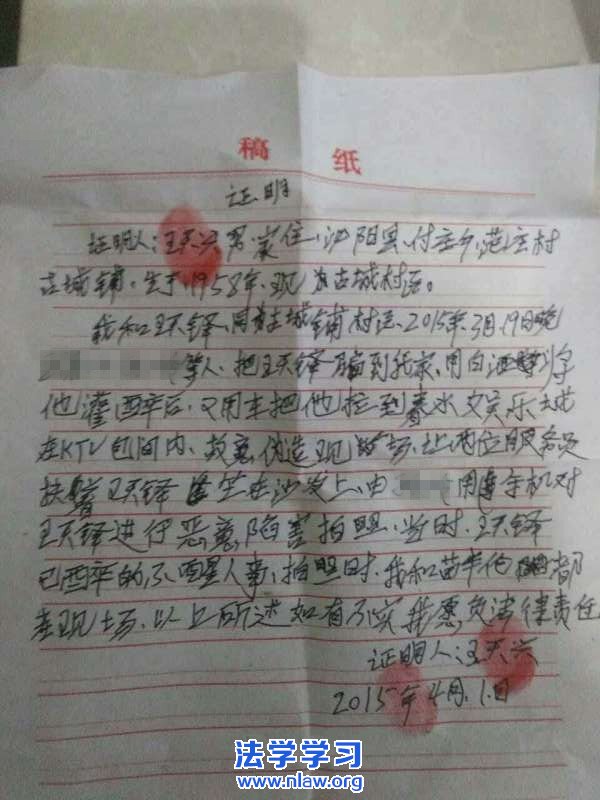 稿 纸
证明
证明人:王天兴 男 家住,泌阳县,付庄乡,范庄村
古城铺。生于,1958年,现为古城村民。
我和王天铎,同为古城铺村民,2015年.3月.19日晚
等人,把王天铎骗到我家,用白酒
他灌醉后,又用车把他拉到春水娱乐城
在KTV包间内,故意伪造现场,让两位服务员
扶着王天铎坐在沙发上,由 用手机对
王天铎进行恶意陷害拍照,当时,王天铎
已酉卒的不醒人事,拍照时.我和苗 都
在现场,以上所述如有不实我愿负法律责任
证明人:王天兴
2015年4月.1.日
法学学习
www.nlaw.org